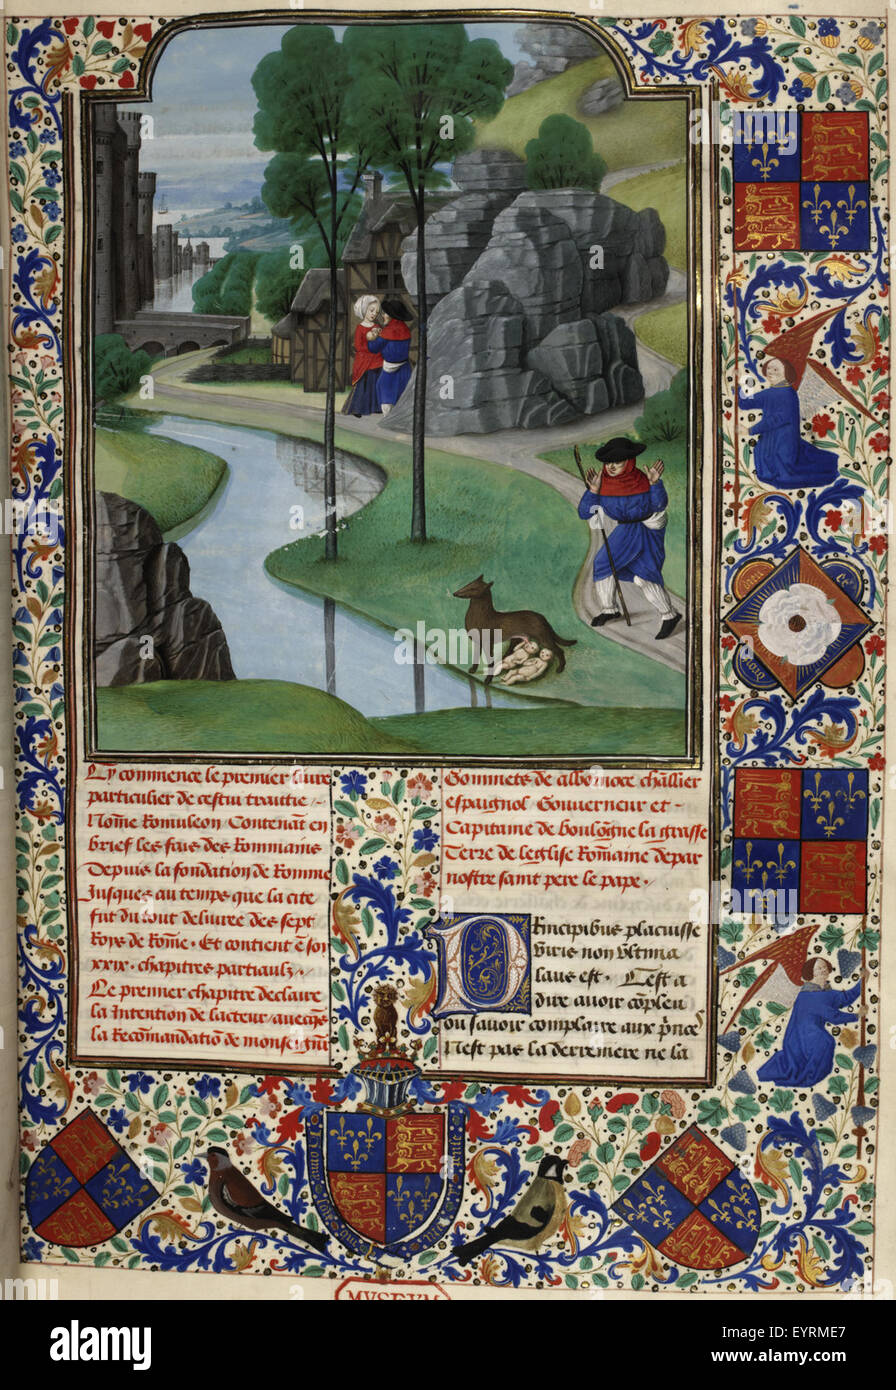 Cy commence le premier livre
particulier de cestui traictie
Nom̄e Romuleon Contenant en
brief les fais des Rommains
Depuis la fondation de Romme
Jusques au temps que la cite
fut du tout deliuree des sept
Roys de Rom̄e . Et contient
xxix . chapitres partiaulx
Le premier chapitre declaire
la Intention de lacteur / auecq̄s
la Recom̄andatiō de monseignr̄
Gommets de albornoce cħallier
espaignol Gouuerneur et
Capitaine de boulogne la grasse
Terre de leglise Rom̄aine de par
nostre saint pere le pape .
Principibus placuisse
viris non vltima
laus est . Cest a
dire auoir cōpleu
ou sauoir complaire aux prīces
Nest pas la derreniere ne la
MVSEVM
alamy
Image ID: EYRME7
www.alamy.com